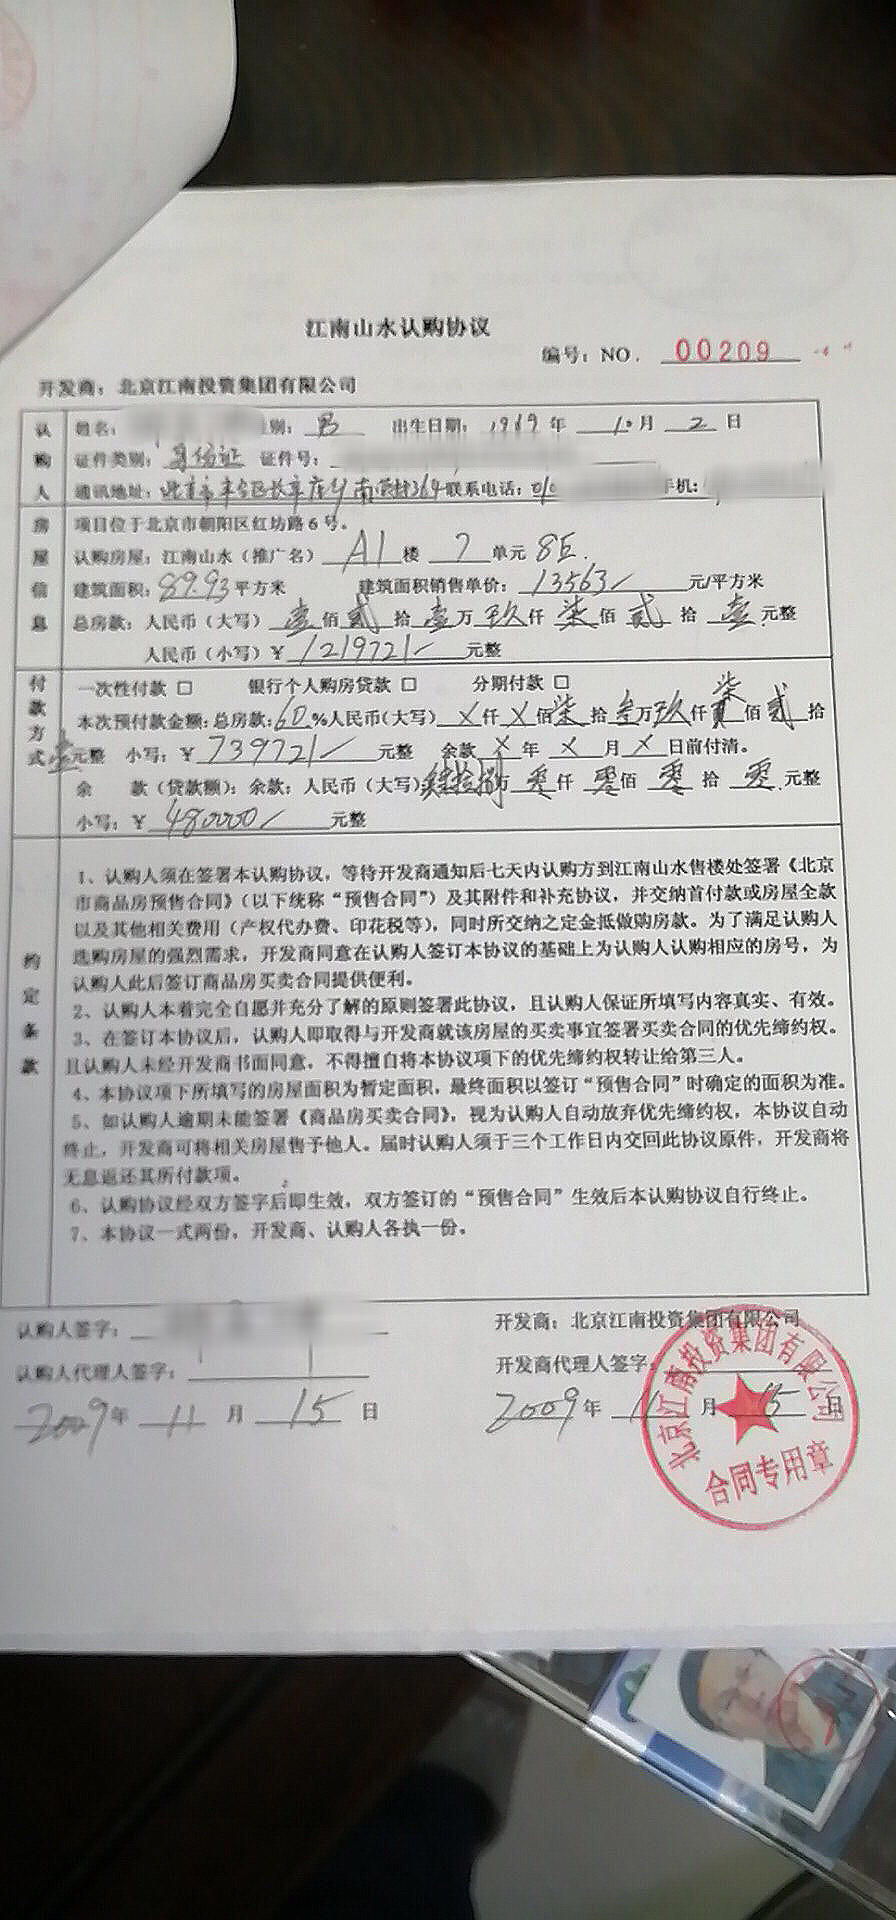 江南山水认购协议
编号：NO. 00209
开发商：北京江南投资集团有限公司
认购人
姓名： 别：男 出生日期：1969年10月2日
证件类别：身份证 证件号：
通讯地址：北京市丰台区长辛店乡 364 联系电话：010 手机：
房屋信息
项目位于北京市朝阳区红坊路6号。
认购房屋：江南山水（推广名） A1 楼 7 单元 8E.
建筑面积：89.93平方米 建筑面积销售单价：13563 元/平方米
总房款：人民币（大写）壹佰贰拾壹万玖仟柒佰贰拾壹元整
人民币（小写）￥1219721 元整
付款方式
一次性付款 □ 银行个人购房贷款 □ 分期付款 □
本次预付款金额：总房款：60%人民币（大写）X仟X佰柒拾叁万玖仟柒佰贰拾
壹元整 小写：￥739721 元整 余款X年X月X日前付清。
余 款（贷款额）：余款：人民币（大写）肆拾捌万零仟零佰零拾零元整
小写：￥480000 元整
约定条款
1、认购人须在签署本认购协议，等待开发商通知后七天内认购方到江南山水售楼处签署《北京
市商品房预售合同》（以下统称“预售合同”）及其附件和补充协议，并交纳首付款或房屋全款
以及其他相关费用（产权代办费、印花税等），同时所交纳之定金抵做购房款。为了满足认购人
选购房屋的强烈需求，开发商同意在认购人签订本协议的基础上为认购人认购相应的房号，为
认购人此后签订商品房买卖合同提供便利。
2、认购人本着完全自愿并充分了解的原则签署此协议，且认购人保证所填写内容真实、有效。
3、在签订本协议后，认购人即取得与开发商就该房屋的买卖事宜签署买卖合同的优先缔约权。
且认购人未经开发商书面同意，不得擅自将本协议项下的优先缔约权转让给第三人。
4、本协议项下所填写的房屋面积为暂定面积，最终面积以签订“预售合同”时确定的面积为准。
5、如认购人逾期未能签署《商品房买卖合同》，视为认购人自动放弃优先缔约权，本协议自动
终止，开发商可将相关房屋售予他人。届时认购人须于三个工作日内交回此协议原件，开发商将
无息返还其所付款项。
6、认购协议经双方签字后即生效，双方签订的“预售合同”生效后本认购协议自行终止。
7、本协议一式两份，开发商、认购人各执一份。
认购人签字： 开发商：北京江南投资集团有限公司
认购人代理人签字： 开发商代理人签字：
2009年11月15日 2009年11月15日
北京江南投资集团有限公司
合同专用章